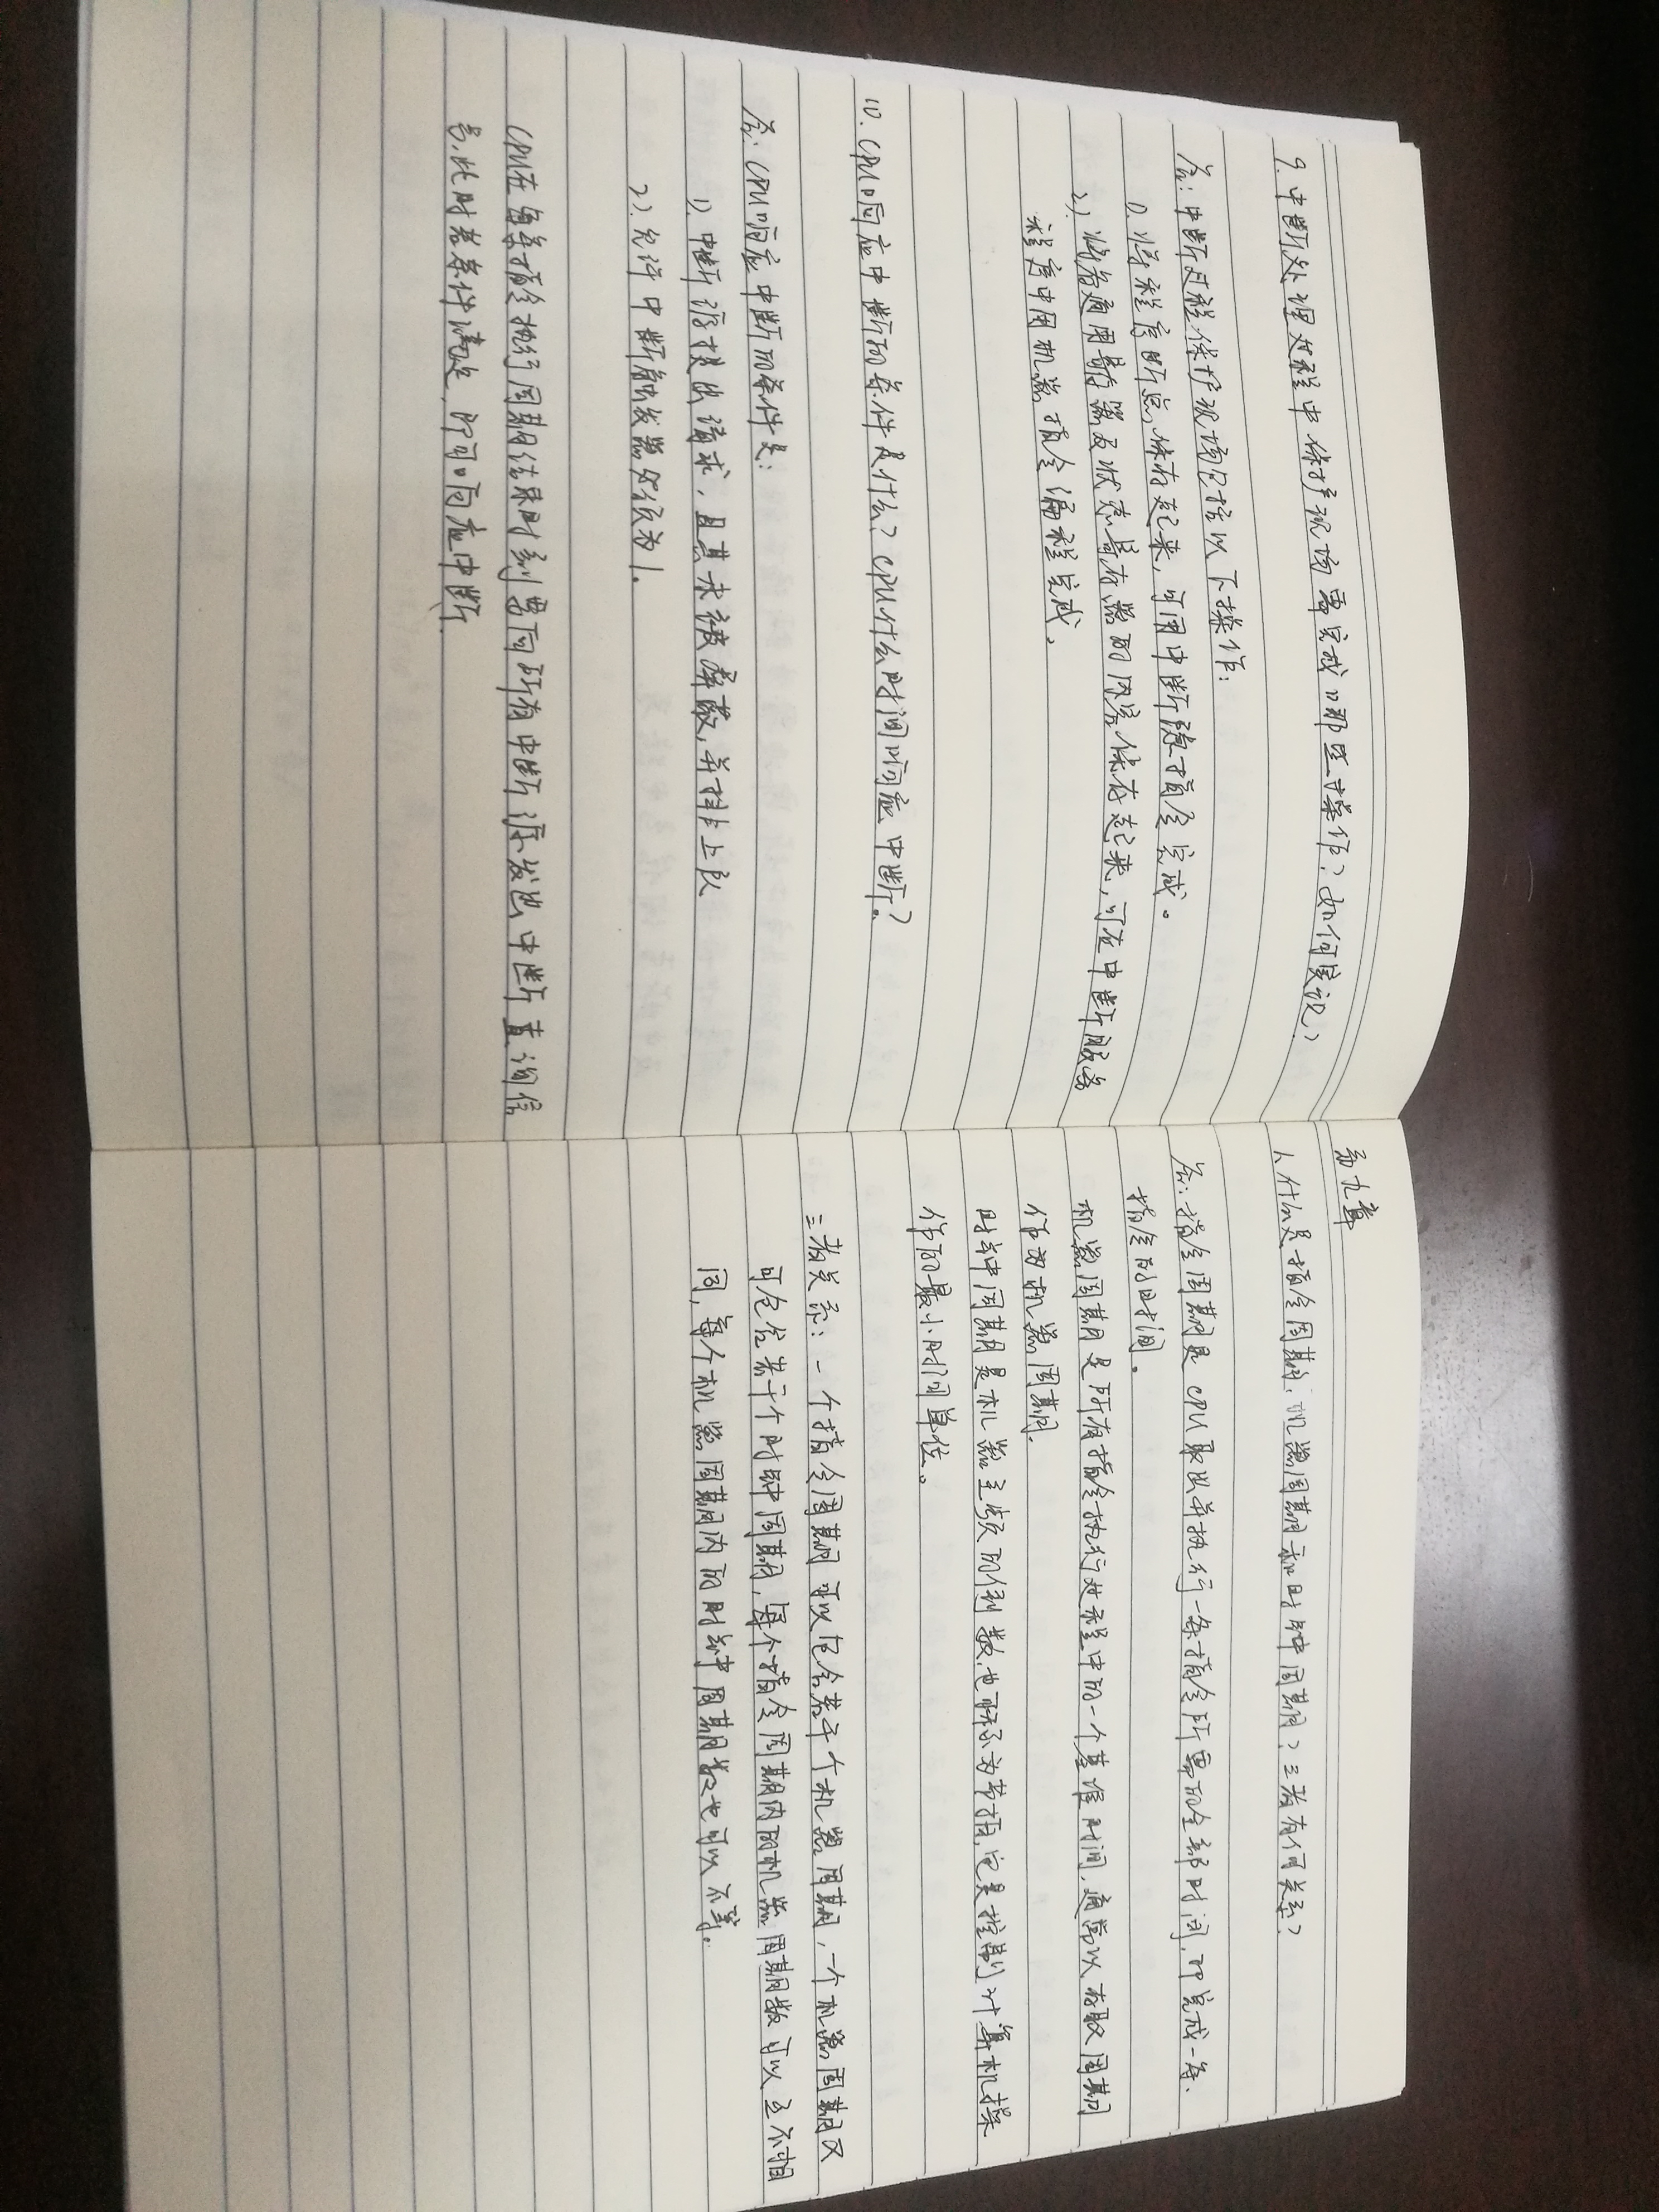 9. 中断处理过程中保护现场需完成哪些操作?如何实现?
答:中断过程保护现场包括以下操作:
1). 将程序断点保存起来,可用中断隐指令完成。
2). 将各通用寄存器及状态寄存器的内容保存起来,可在中断服务
程序中用机器指令编程完成。
10. CPU响应中断的条件是什么?CPU什么时间响应中断?
答:CPU响应中断的条件是:
1). 中断源提出请求,且其未被屏蔽,并排上队
2). 允许中断触发器必须为1.
CPU在每条指令执行周期结束时刻需向所有中断源发出中断查询信
号,此时若条件满足,即可响应中断.
第九章
1. 什么是指令周期、机器周期和时钟周期?三者有何关系?
答:指令周期是CPU取出并执行一条指令所需的全部时间,即完成一条
指令的时间。
机器周期是所有指令执行过程中的一个基准时间,通常以存取周期
作为机器周期.
时钟周期是机器主频的倒数,也可称为节拍,它是控制计算机操
作的最小时间单位。
三者关系:一个指令周期可以包含若干个机器周期,一个机器周期又
可包含若干个时钟周期,每个指令周期内的机器周期数可以互不相
同,每个机器周期内的时钟周期数也可以不等。